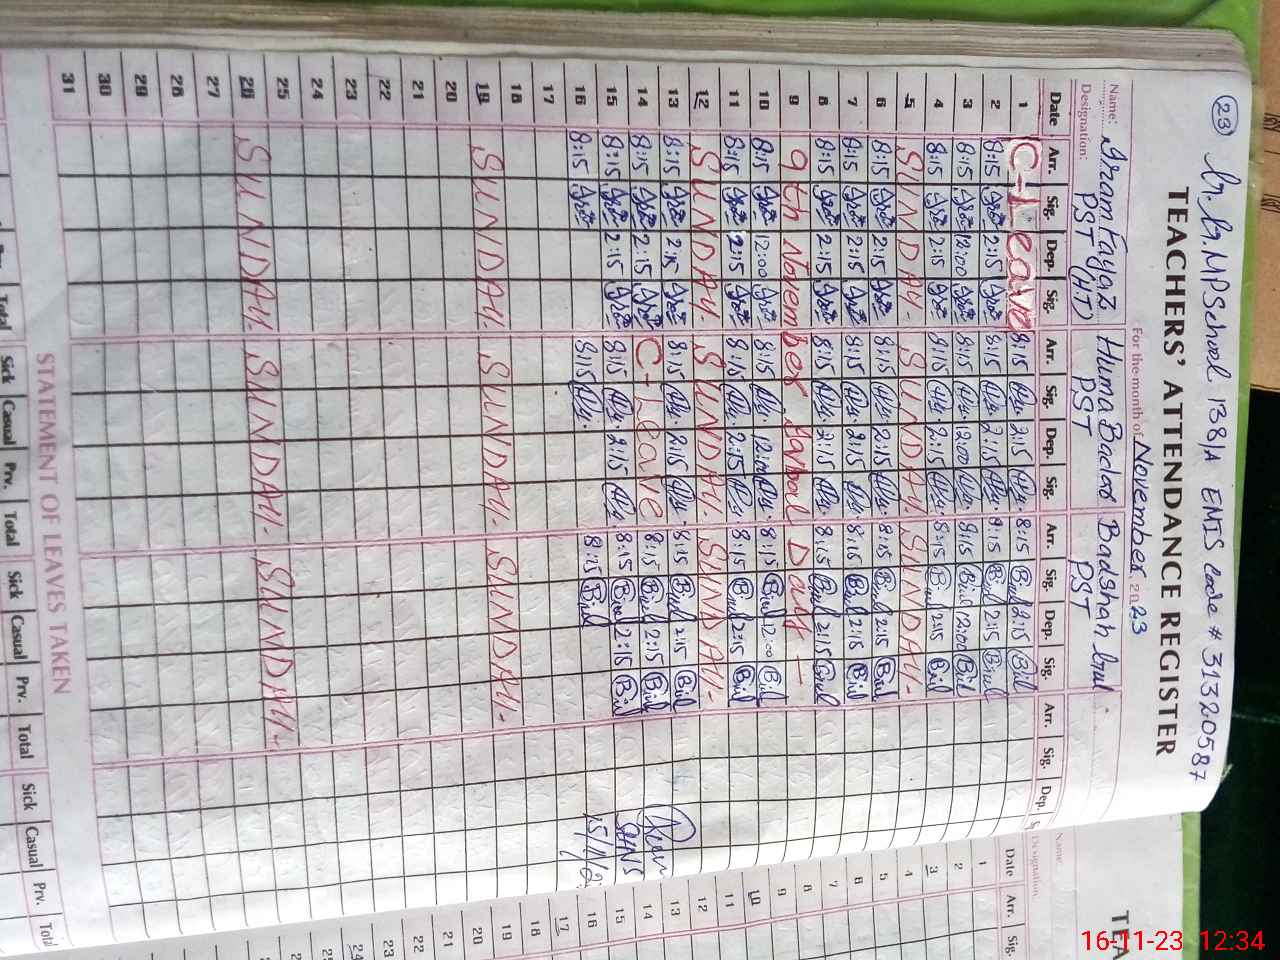 23 G.G.MPSchool 138/A EMIS Code # 31320587
TEACHERS' ATTENDANCE REGISTER
For the month of November 2023
Name: Iram Fayaz Huma Badar Badshah Gul
Designation: PST (HT) PST PST
Date Arr. Sig. Dep. Sig. Arr. Sig. Dep. Sig. Arr. Sig. Dep. Sig. Arr. Sig. Dep.
1 C-Leave 8:15 2:15 8:15 2:15
2 8:15 2:15 8:15 2:15 8:15 2:15
3 8:15 12:00 8:15 12:00 8:15 12:00
4 8:15 2:15 8:15 2:15 8:15 2:15
5 SUNDAY SUNDAY SUNDAY
6 8:15 2:15 8:15 2:15 8:15 2:15
7 8:15 2:15 8:15 2:15 8:15 2:15
8 8:15 2:15 8:15 2:15 8:15 2:15
9 9th November Day
10 8:15 12:00 8:15 12:00 8:15 12:00
11 8:15 2:15 8:15 2:15 8:15 2:15
12 SUNDAY SUNDAY SUNDAY
13 8:15 2:15 8:15 2:15 8:15 2:15
14 8:15 2:15 C-Leave 8:15 2:15
15 8:15 2:15 8:15 2:15 8:15 2:15
16 8:15 8:15 8:15
17
18
19 SUNDAY SUNDAY SUNDAY
20
21
22
23
24
25
26 SUNDAY SUNDAY SUNDAY
27
28
29
30
31
STATEMENT OF LEAVES TAKEN
Total Sick Casual Prv. Total Sick Casual Prv. Total Sick Casual Prv. Total
TEA
Name:
Designation
Date Arr. Sig.
1
2
3
4
5
6
7
8
9
10
11
12
13
14
15
16
17
18
19
20
21
22
23
24
16-11-23 12:34